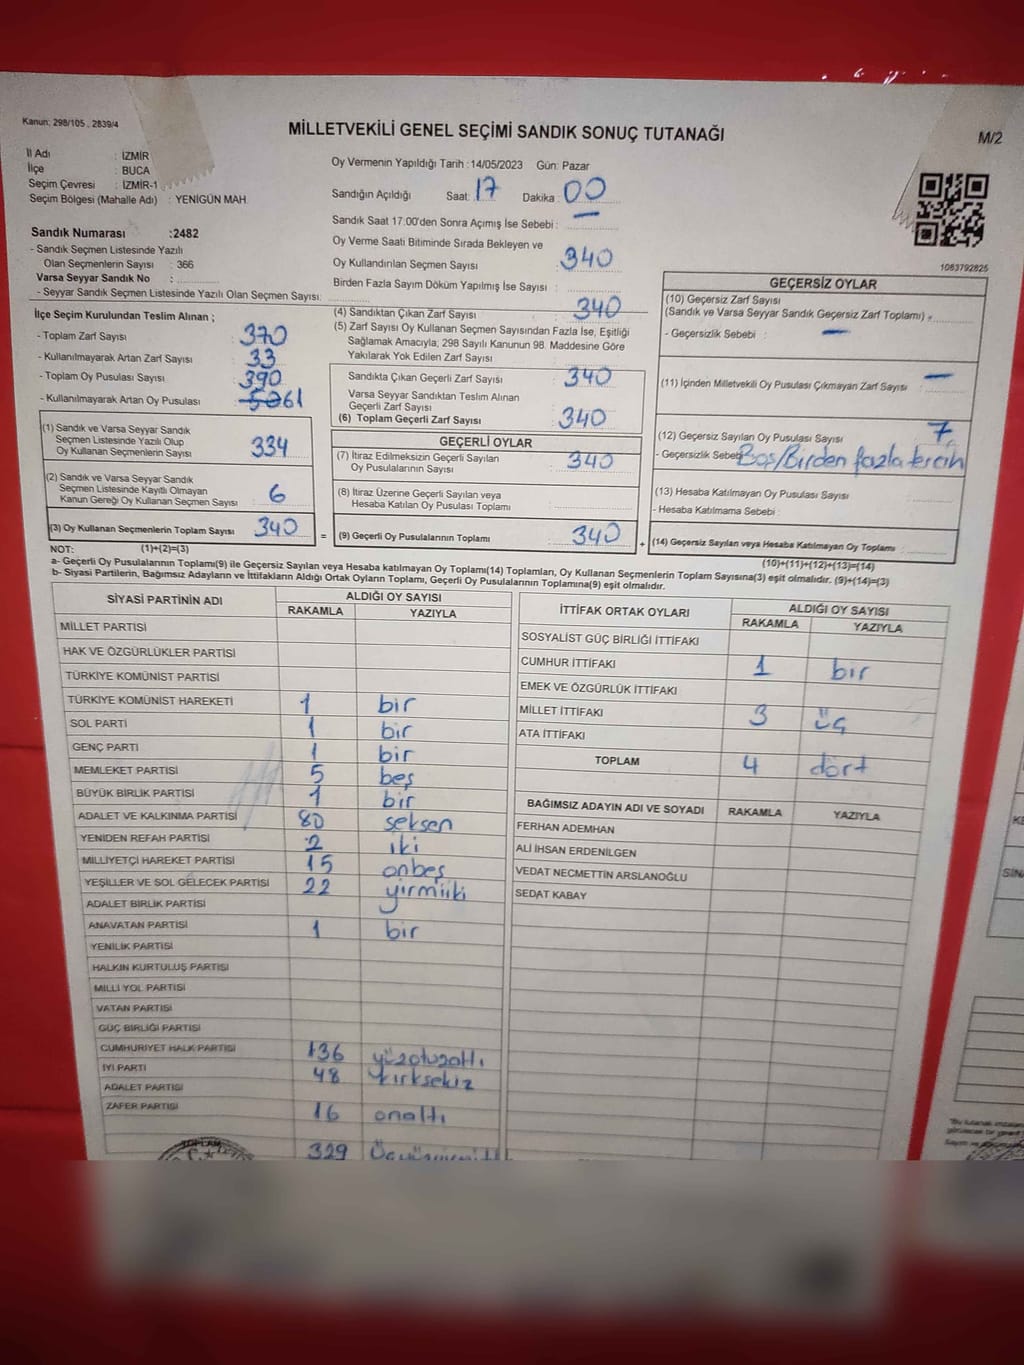 Kanun: 298/105 , 2839/4
MİLLETVEKİLİ GENEL SEÇİMİ SANDIK SONUÇ TUTANAĞI
M/2
İl Adı : İZMİR
İlçe : BUCA
Seçim Çevresi : İZMİR-1
Seçim Bölgesi (Mahalle Adı) : YENİGÜN MAH.
Oy Vermenin Yapıldığı Tarih : 14/05/2023 Gün: Pazar
Sandığın Açıldığı Saat: 17 Dakika: 00
Sandık Saat 17:00'den Sonra Açımış İse Sebebi : —
Oy Verme Saati Bitiminde Sırada Bekleyen ve
Oy Kullandırılan Seçmen Sayısı 340
Birden Fazla Sayım Döküm Yapılmış İse Sayısı :
Sandık Numarası :2482
- Sandık Seçmen Listesinde Yazılı
Olan Seçmenlerin Sayısı : 366
Varsa Seyyar Sandık No :
- Seyyar Sandık Seçmen Listesinde Yazılı Olan Seçmen Sayısı:
İlçe Seçim Kurulundan Teslim Alınan ;
- Toplam Zarf Sayısı : 370
- Kullanılmayarak Artan Zarf Sayısı : 33
- Toplam Oy Pusulası Sayısı : 390
- Kullanılmayarak Artan Oy Pusulası : 61
(1) Sandık ve Varsa Seyyar Sandık
Seçmen Listesinde Yazılı Olup
Oy Kullanan Seçmenlerin Sayısı 334
(2) Sandık ve Varsa Seyyar Sandık
Seçmen Listesinde Kayıtlı Olmayan
Kanun Gereği Oy Kullanan Seçmen Sayısı 6
(3) Oy Kullanan Seçmenlerin Toplam Sayısı 340
(4) Sandıktan Çıkan Zarf Sayısı : 340
(5) Zarf Sayısı Oy Kullanan Seçmen Sayısından Fazla İse, Eşitliği
Sağlamak Amacıyla, 298 Sayılı Kanunun 98. Maddesine Göre
Yakılarak Yok Edilen Zarf Sayısı :
Sandıkta Çıkan Geçerli Zarf Sayısı : 340
Varsa Seyyar Sandıktan Teslim Alınan
Geçerli Zarf Sayısı :
(6) Toplam Geçerli Zarf Sayısı : 340
GEÇERLİ OYLAR
(7) İtiraz Edilmeksizin Geçerli Sayılan
Oy Pusulalarının Sayısı : 340
(8) İtiraz Üzerine Geçerli Sayılan veya
Hesaba Katılan Oy Pusulası Toplamı :
= (9) Geçerli Oy Pusulalarının Toplamı : 340
1083792825
GEÇERSİZ OYLAR
(10) Geçersiz Zarf Sayısı
(Sandık ve Varsa Seyyar Sandık Geçersiz Zarf Toplamı)
- Geçersizlik Sebebi : —
(11) İçinden Milletvekili Oy Pusulası Çıkmayan Zarf Sayısı : —
(12) Geçersiz Sayılan Oy Pusulası Sayısı : 7
- Geçersizlik Sebebi Boş/Birden fazla tercih
(13) Hesaba Katılmayan Oy Pusulası Sayısı :
- Hesaba Katılmama Sebebi :
+ (14) Geçersiz Sayılan veya Hesaba Katılmayan Oy Toplamı :
NOT: (1)+(2)=(3)
(10)+(11)+(12)+(13)=(14)
a- Geçerli Oy Pusulaların Toplamı(9) ile Geçersiz Sayılan veya Hesaba katılmayan Oy Toplamı(14) Toplamları, Oy Kullanan Seçmenlerin Toplam Sayısına(3) eşit olmalıdır. (9)+(14)=(3)
b- Siyasi Partilerin, Bağımsız Adayların ve İttifakların Aldığı Ortak Oyların Toplamı, Geçerli Oy Pusulalarının Toplamına(9) eşit olmalıdır.
SİYASİ PARTİNİN ADI ALDIĞI OY SAYISI
RAKAMLA YAZIYLA
MİLLET PARTİSİ
HAK VE ÖZGÜRLÜKLER PARTİSİ
TÜRKİYE KOMÜNİST PARTİSİ
TÜRKİYE KOMÜNİST HAREKETİ 1 bir
SOL PARTİ 1 bir
GENÇ PARTİ 1 bir
MEMLEKET PARTİSİ 5 beş
BÜYÜK BİRLİK PARTİSİ 1 bir
ADALET VE KALKINMA PARTİSİ 80 seksen
YENİDEN REFAH PARTİSİ 2 iki
MİLLİYETÇİ HAREKET PARTİSİ 15 onbeş
YEŞİLLER VE SOL GELECEK PARTİSİ 22 yirmiiki
ADALET BİRLİK PARTİSİ
ANAVATAN PARTİSİ 1 bir
YENİLİK PARTİSİ
HALKIN KURTULUŞ PARTİSİ
MİLLİ YOL PARTİSİ
VATAN PARTİSİ
GÜÇ BİRLİĞİ PARTİSİ
CUMHURİYET HALK PARTİSİ 136 yüzotuzaltı
İYİ PARTİ 48 kırksekiz
ADALET PARTİSİ
ZAFER PARTİSİ 16 onaltı
TOPLAM 329
İTTİFAK ORTAK OYLARI ALDIĞI OY SAYISI
RAKAMLA YAZIYLA
SOSYALİST GÜÇ BİRLİĞİ İTTİFAKI
CUMHUR İTTİFAKI 1 bir
EMEK VE ÖZGÜRLÜK İTTİFAKI
MİLLET İTTİFAKI 3 üç
ATA İTTİFAKI
TOPLAM 4 dört
BAĞIMSIZ ADAYIN ADI VE SOYADI RAKAMLA YAZIYLA
FERHAN ADEMHAN
ALİ İHSAN ERDENİLGEN
VEDAT NECMETTİN ARSLANOĞLU
SEDAT KABAY